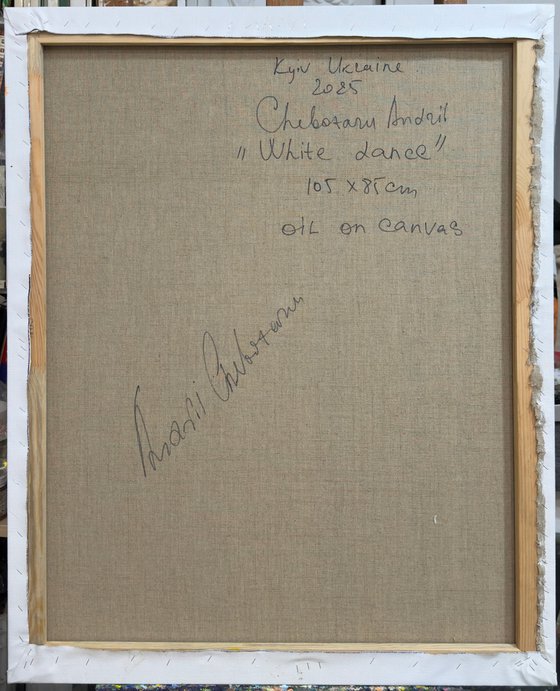 Kyiv Ukraine
2025
Chebotaru Andrii
"White dance"
105 x 85 cm
oil on canvas
Andrii Chebotaru